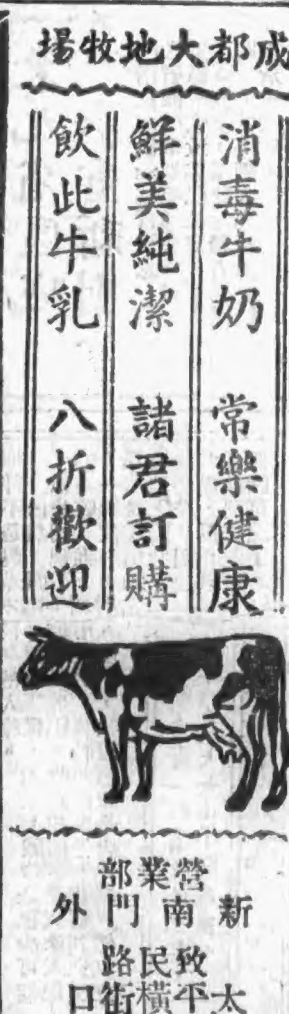 成都大地牧場
消毒牛奶 常樂健康
鮮美純潔 諸君訂購
飲此牛乳 八折歡迎
營業部
新南門外
致民路
太平橫街口